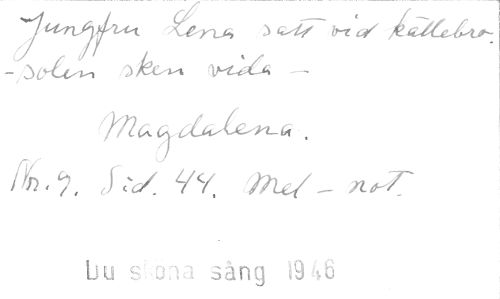 Jungfru Lena satt vid källebro.
-solen sken vida -
Magdalena.
Nr. 9. Sid. 44. Mel - not.
Du sköna sång 1946